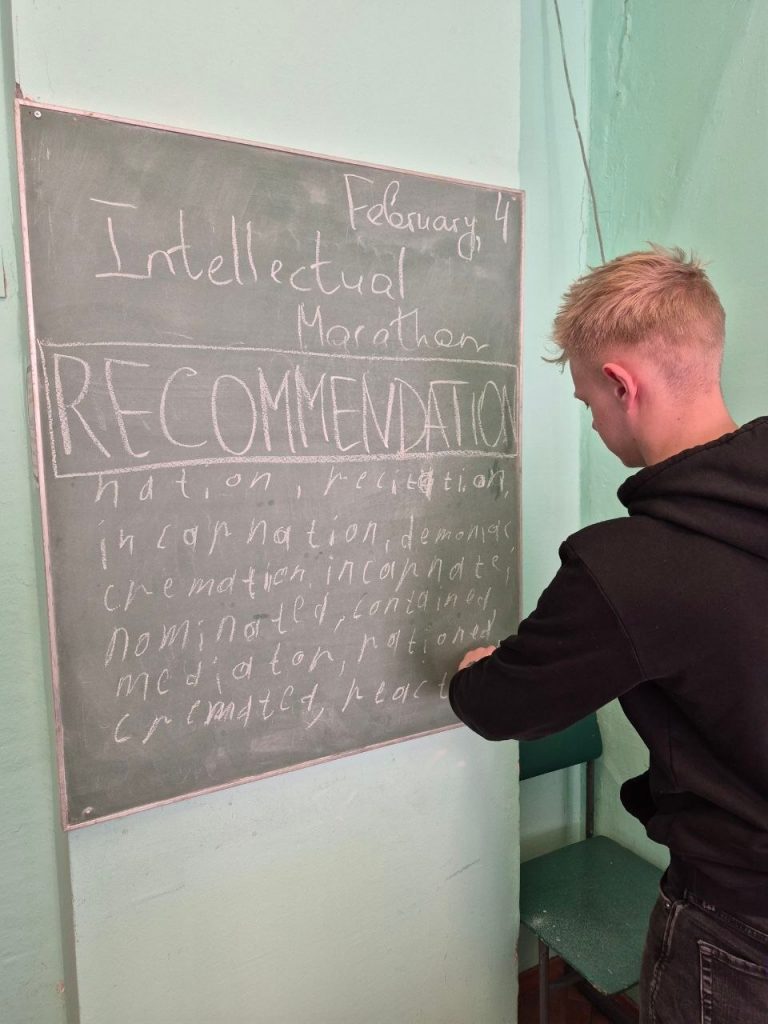 February, 4
Intellectual
Marathon
RECOMMENDATION
nation, recitation,
incarnation, demoniac
cremation, incarnate,
nominated, contained
mediator, rationed,
cremated, react